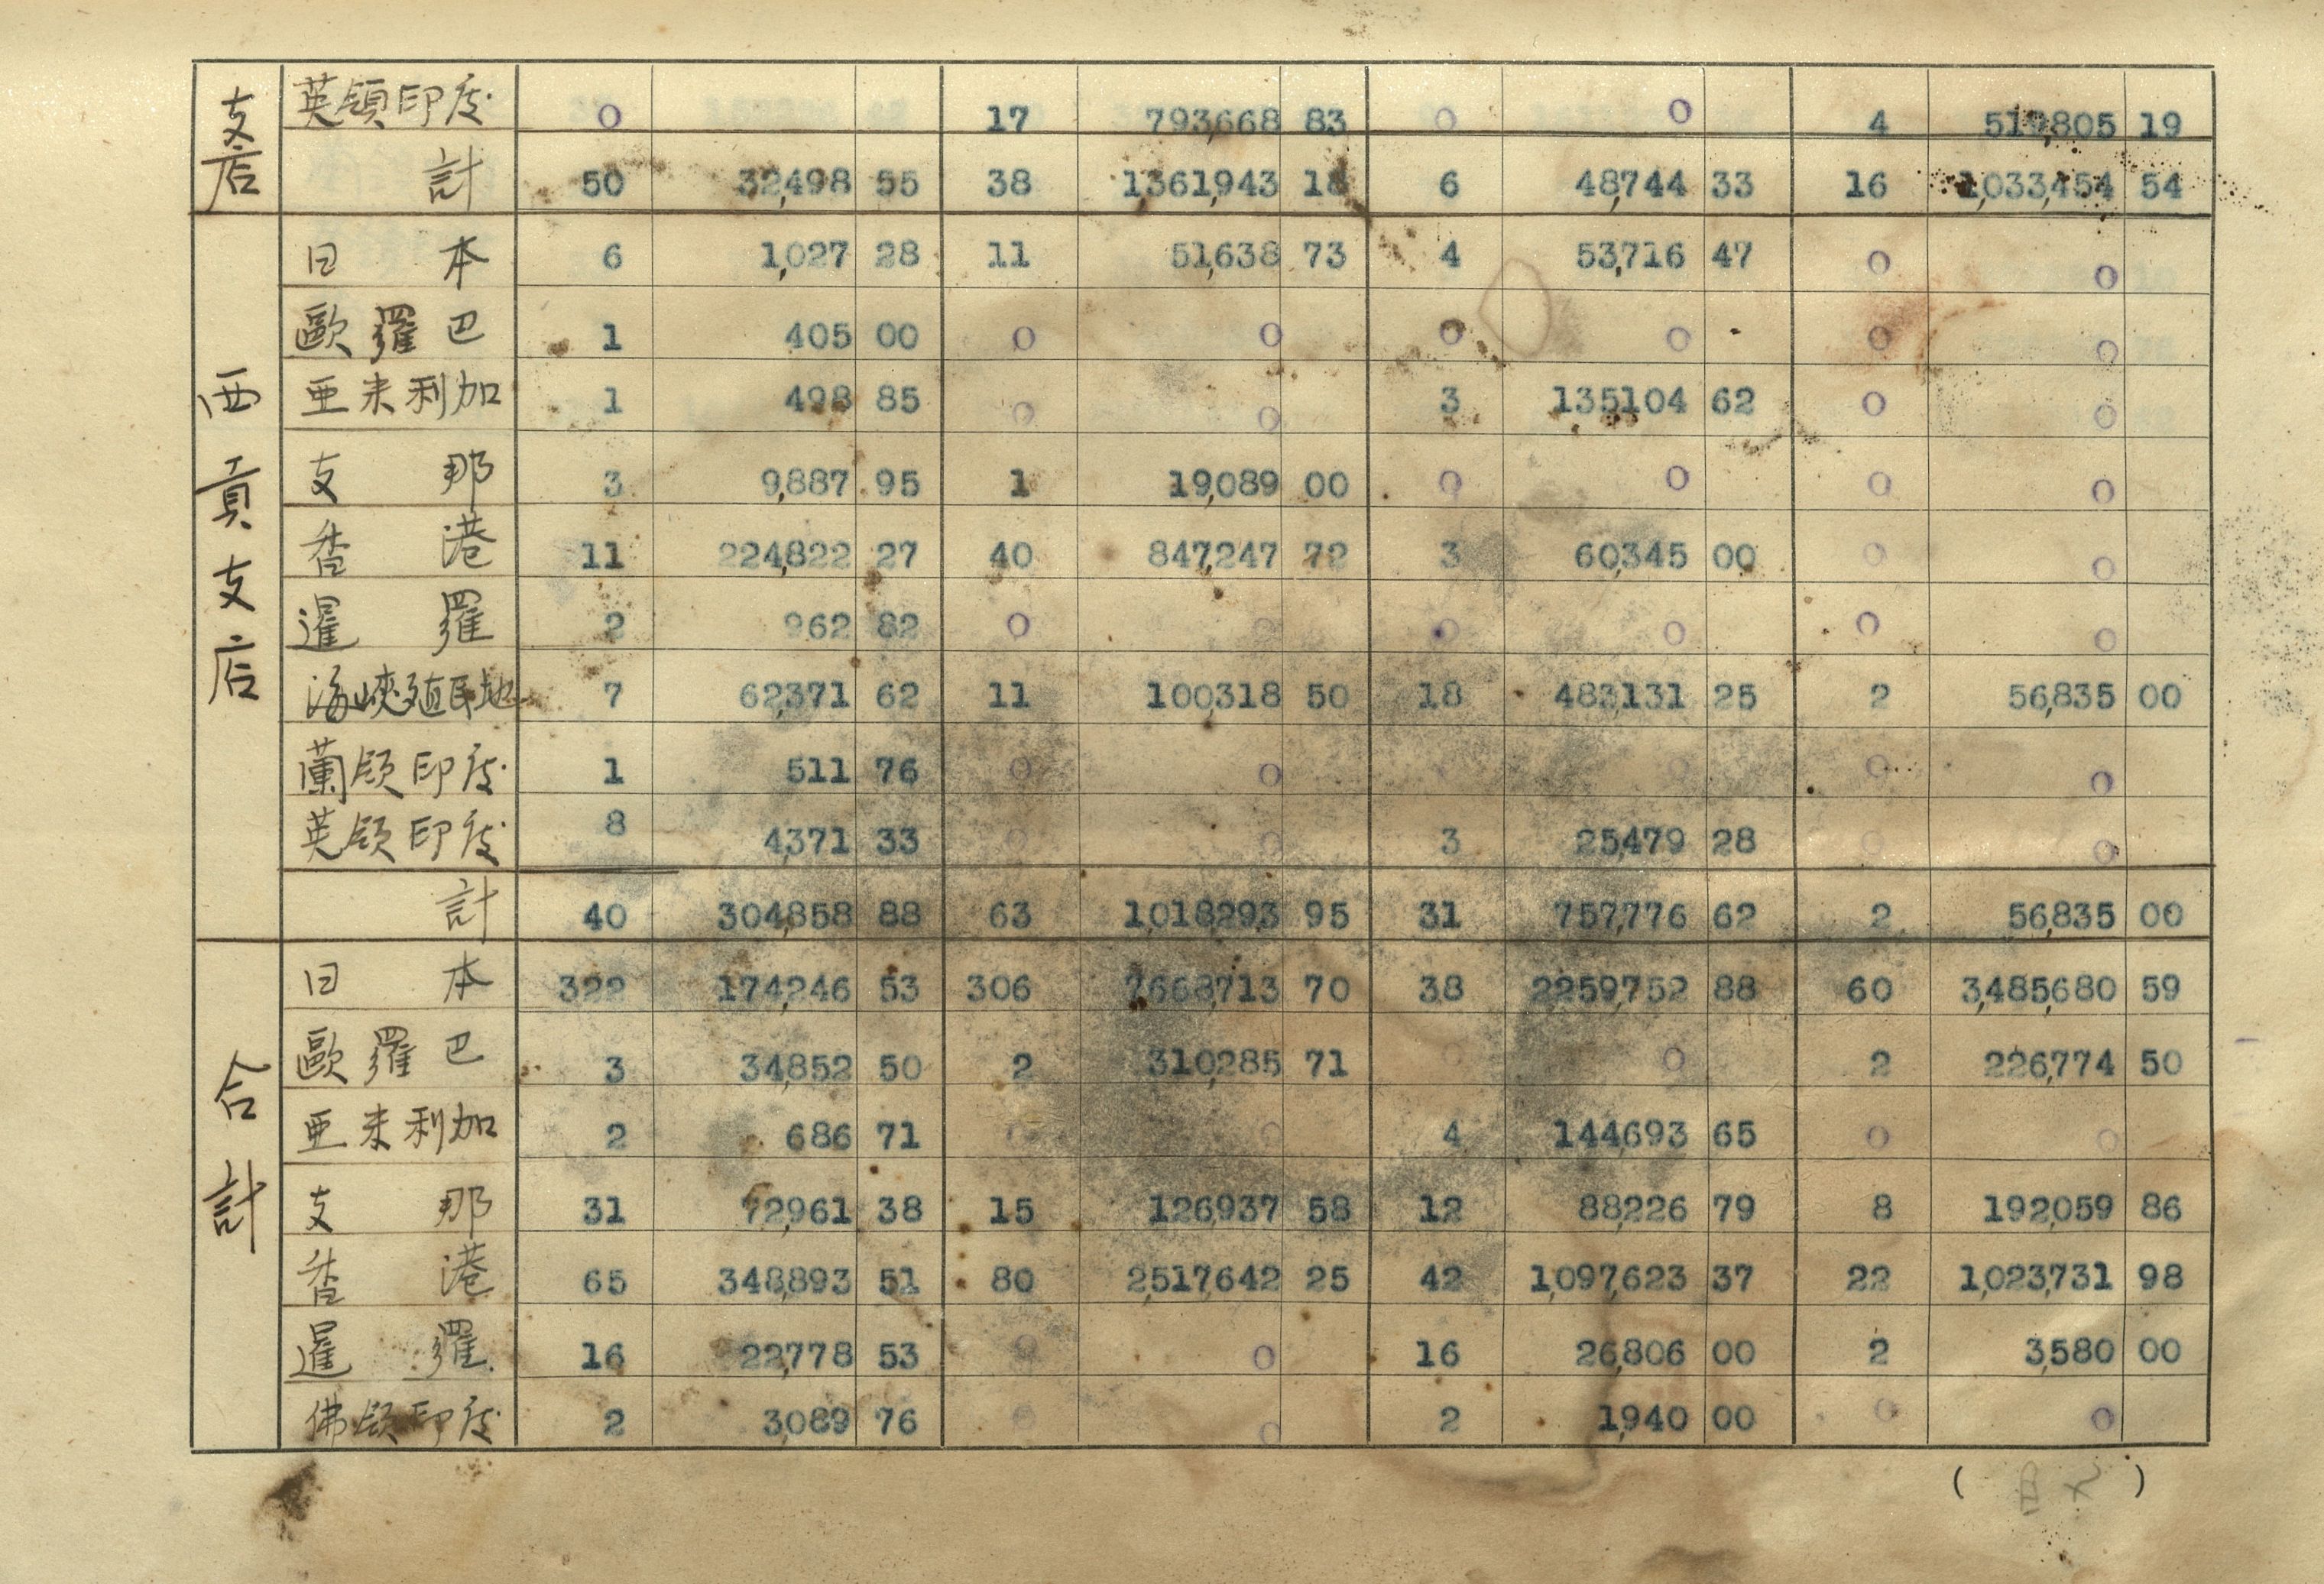 支店 英領印度 0 17 793,668 83 0 0 4 519,805 19
計 50 32,498 55 38 1361,943 18 6 48,744 33 16 1,033,454 54
西貢支店 日本 6 1,027 28 11 51,638 73 4 53,716 47 0 0
歐羅巴 1 405 00 0 0 0 0 0 0
亜未利加 1 498 85 0 0 3 135104 62 0 0
支那 3 9,887 95 1 19,089 00 0 0 0 0
香港 11 224,822 27 40 847,247 72 3 60,345 00 0 0
暹羅 2 962 82 0 0 0 0 0 0
海峽殖民地 7 62,371 62 11 100318 50 18 483,131 25 2 56,835 00
蘭領印度 1 511 76 0 0 0 0 0 0
英領印度 8 4,371 33 0 0 3 25,479 28 0 0
計 40 304,858 88 63 1,018,293 95 31 757,776 62 2 56,835 00
合計 日本 322 174,246 53 306 7,668,713 70 38 2259,752 88 60 3,485,680 59
歐羅巴 3 34,852 50 2 310,285 71 0 0 2 226,774 50
亜未利加 2 686 71 0 0 4 144,693 65 0 0
支那 31 72,961 38 15 126,937 58 12 88,226 79 8 192,059 86
香港 65 348,893 51 80 2,517,642 25 42 1,097,623 37 22 1,023,731 98
暹羅 16 22,778 53 0 0 16 26,806 00 2 3,580 00
佛領印度 2 3,089 76 0 0 2 1,940 00 0 0